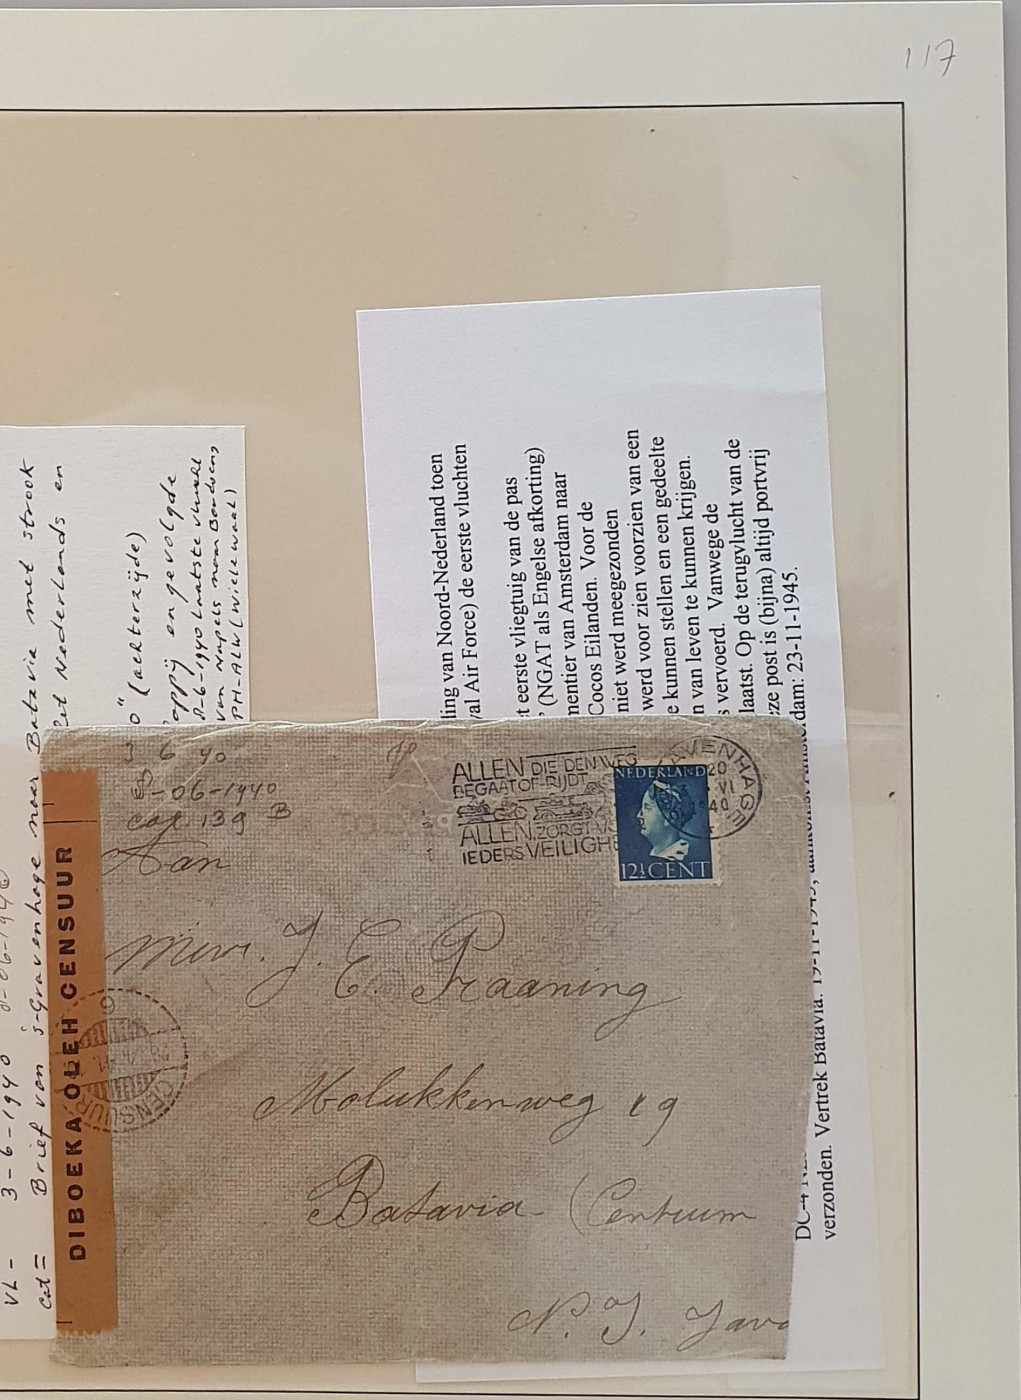 117
VL - 3-6-1940
Cat = Brief van s-Gravenhage naar Batavia met strook
Nederlands en
0" (achterzijde)
ongevolgde
8-6-1940 Laatste vlucht
van Napels naar Bandoeng
PH-ALW (Wielewaal)
ling van Noord-Nederland toen
al Air Force) de eerste vluchten
t eerste vliegtuig van de pas
(NGAT als Engelse afkorting)
mentier van Amsterdam naar
Cocos Eilanden. Voor de
niet werd meegezonden
werd voor zien voorzien van een
e kunnen stellen en een gedeelte
n van leven te kunnen krijgen.
s vervoerd. Vanwege de
laatst. Op de terugvlucht van de
eze post is (bijna) altijd portvrij
dam: 23-11-1945.
DC-4
verzonden. Vertrek Batavia. 19-11-1945,
6 40
8-06-1940
cat 139 B
ALLEN DIE DEN WEG
BEGAAT OF RIJDT
ALLEN ZORGT
IEDERS VEILIGH
NEDERLAND
12½ CENT
AVENHAGE
20
VI
1940
Aan
Mevr. J. E. Praaning
Molukkenweg 19
Batavia (Centrum
N. I. Java
DIBOEKA OLEH CENSUUR
6
CENSUUR